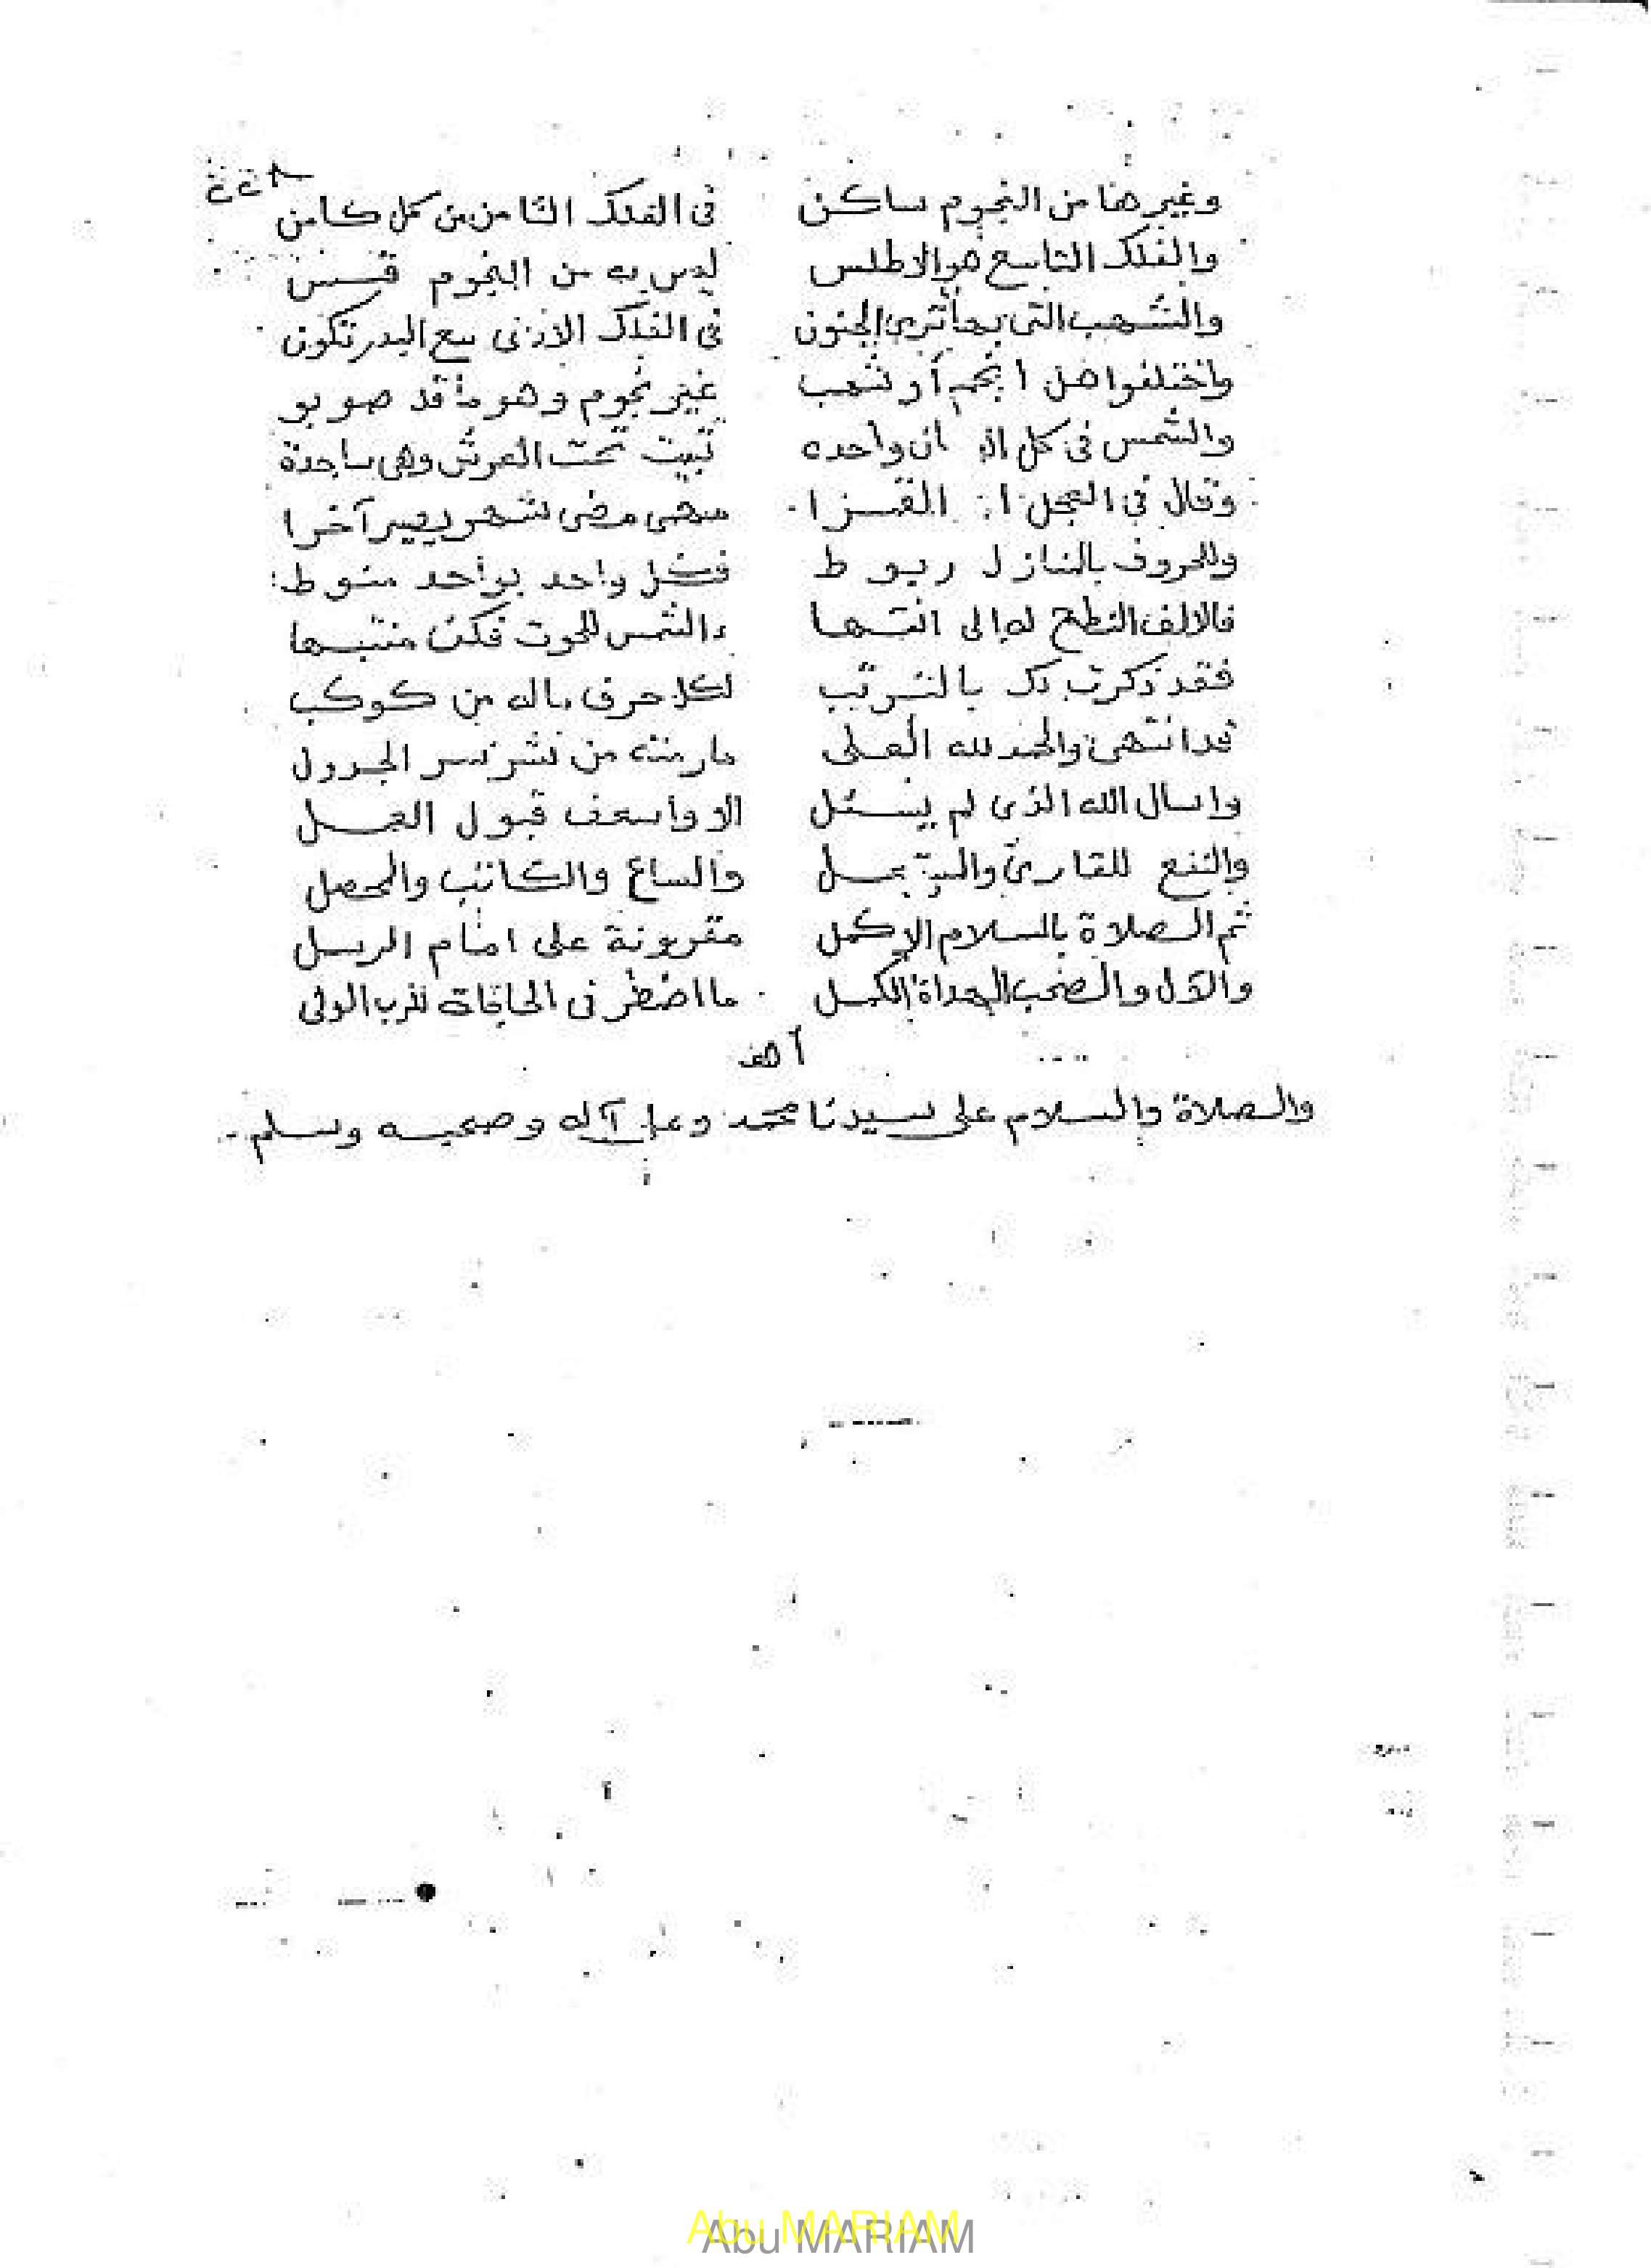 وغيرها من النجوم ساكن في الفلك الثامن من كل كامن
والفلك التاسع هو الاطلس ليس به من النجوم قبس
والشهب التي بها ترمى الجنون في الفلك الادنى مع البدر تكون
واختلفوا هل انجم أو شهب غير نجوم وهو ما قد صوبو
والشمس في كل آن واحده تبيت تحت العرش وهي ساجدة
وقال في العجل القمرا متى مضى شهر يصير آخرا
وللحروف بالمنازل ربوط فكل واحد بواحد منوط
فالالف النطح له إلى انتها والشمس للحوت فكن منتبها
فقد ذكرت بالترتيب لكل حرف ماله من كوكب
قد انتهى والحمد لله العلى ما رمته من نشر الجدول
واسال الله الذي لم يسئل الا وأسعف قبول العمل
والنفع للقارئ والساع والكاتب والمحصل
ثم الصلاة بالسلام الاكمل مقرونة على امام الرسل
والآل والصحب الهداة الكمل ما اضطر في الحاجات للرب الولى
والصلاة والسلام على سيدنا محمد وعلى آله وصحبه وسلم
Abu MARIAM